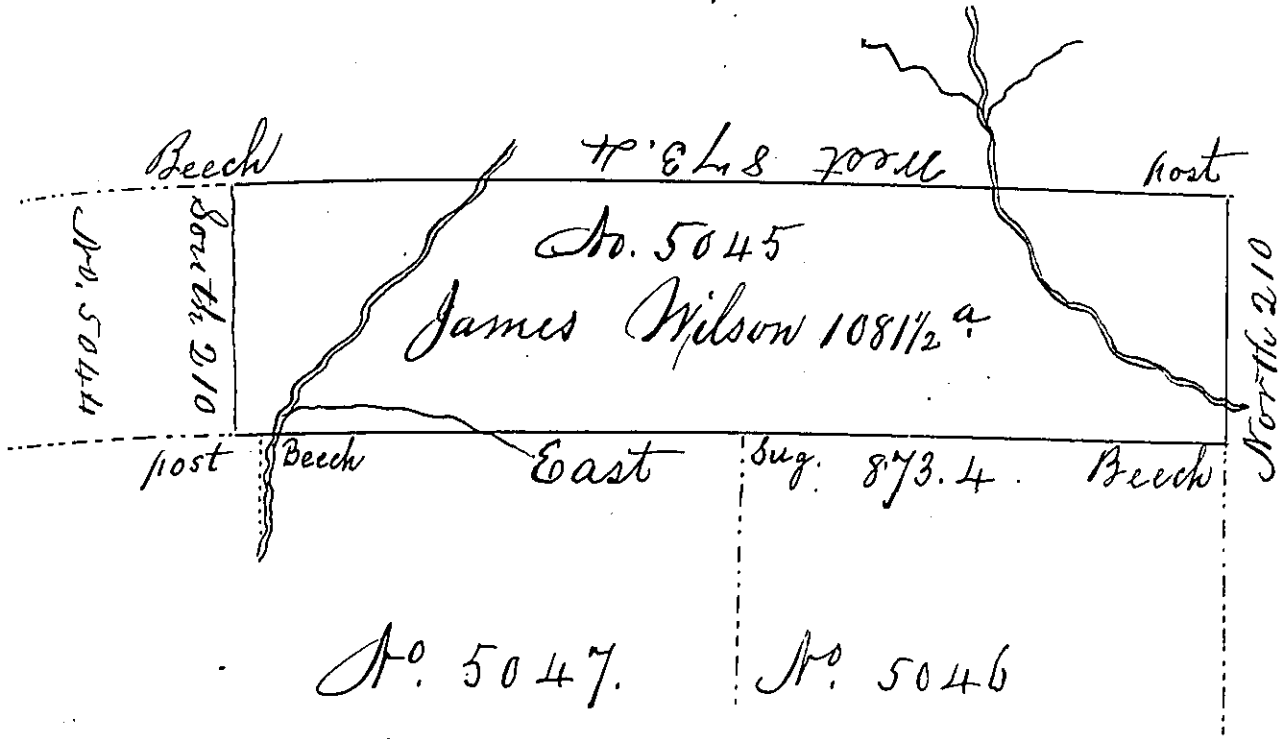 Beech
West 873.4
post
No. 5044
South 210
No. 5045
James Wilson 1081½ a.
North 210
post
Beech
East
Sug. 873.4.
Beech
No. 5047.
No. 5046